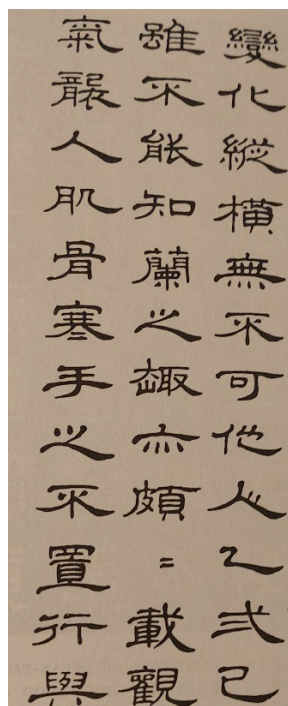 變化縱橫無不可他人乙弍已
雖不能知蘭之趣亦頗〻載觀
氣襲人肌骨寒手之不置行與